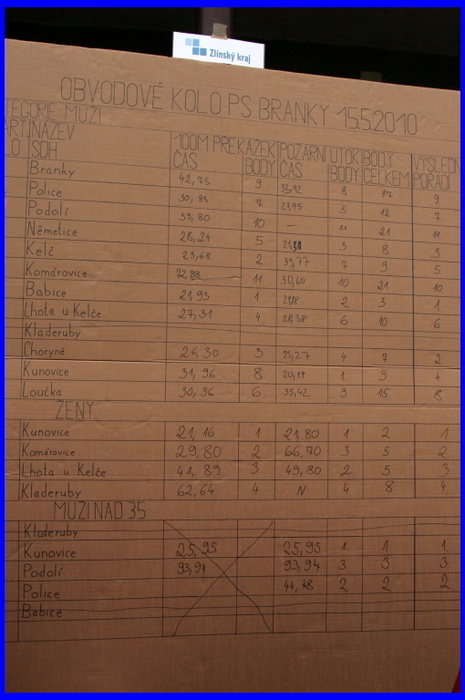 Zlínský kraj
OBVODOVÉ KOLO PS BRANKY 15.5.2010
TEGORIE MUŽI
NÁZEV 100M PŘEKÁŽEK POŽÁRNÍ ÚTOK BODY
SDH ČAS BODY ČAS BODY CELKEM POŘADÍ
Branky 42,75 9 8 17 9
Police 30,85 7 27,95 5 12 7
Podolí 39,80 10 — 11 21 11
Němetice 28,24 5 3 8 3
Kelč 23,68 2 39,77 7 9 5
Komárovice 11 30,60 10 21 10
Babice 21,93 1 2 3 1
Lhota u Kelče 27,31 4 28,38 6 10 6
Kladeruby
Choryně 26,30 3 25,27 4 7 2
Kunovice 31,96 8 20,19 1 9 4
Loučka 30,36 6 35,42 9 15 8
ŽENY
Kunovice 21,16 1 21,80 1 2 1
Komárovice 29,80 2 66,70 3 5 2
Lhota u Kelče 41,89 3 49,80 2 5 3
Kladeruby 62,64 4 N 4 8 4
MUŽI NAD 35
Kladeruby
Kunovice 25,95 25,95 1 1 1
Podolí 93,94 93,94 3 3 3
Police 44,48 2 2 2
Babice